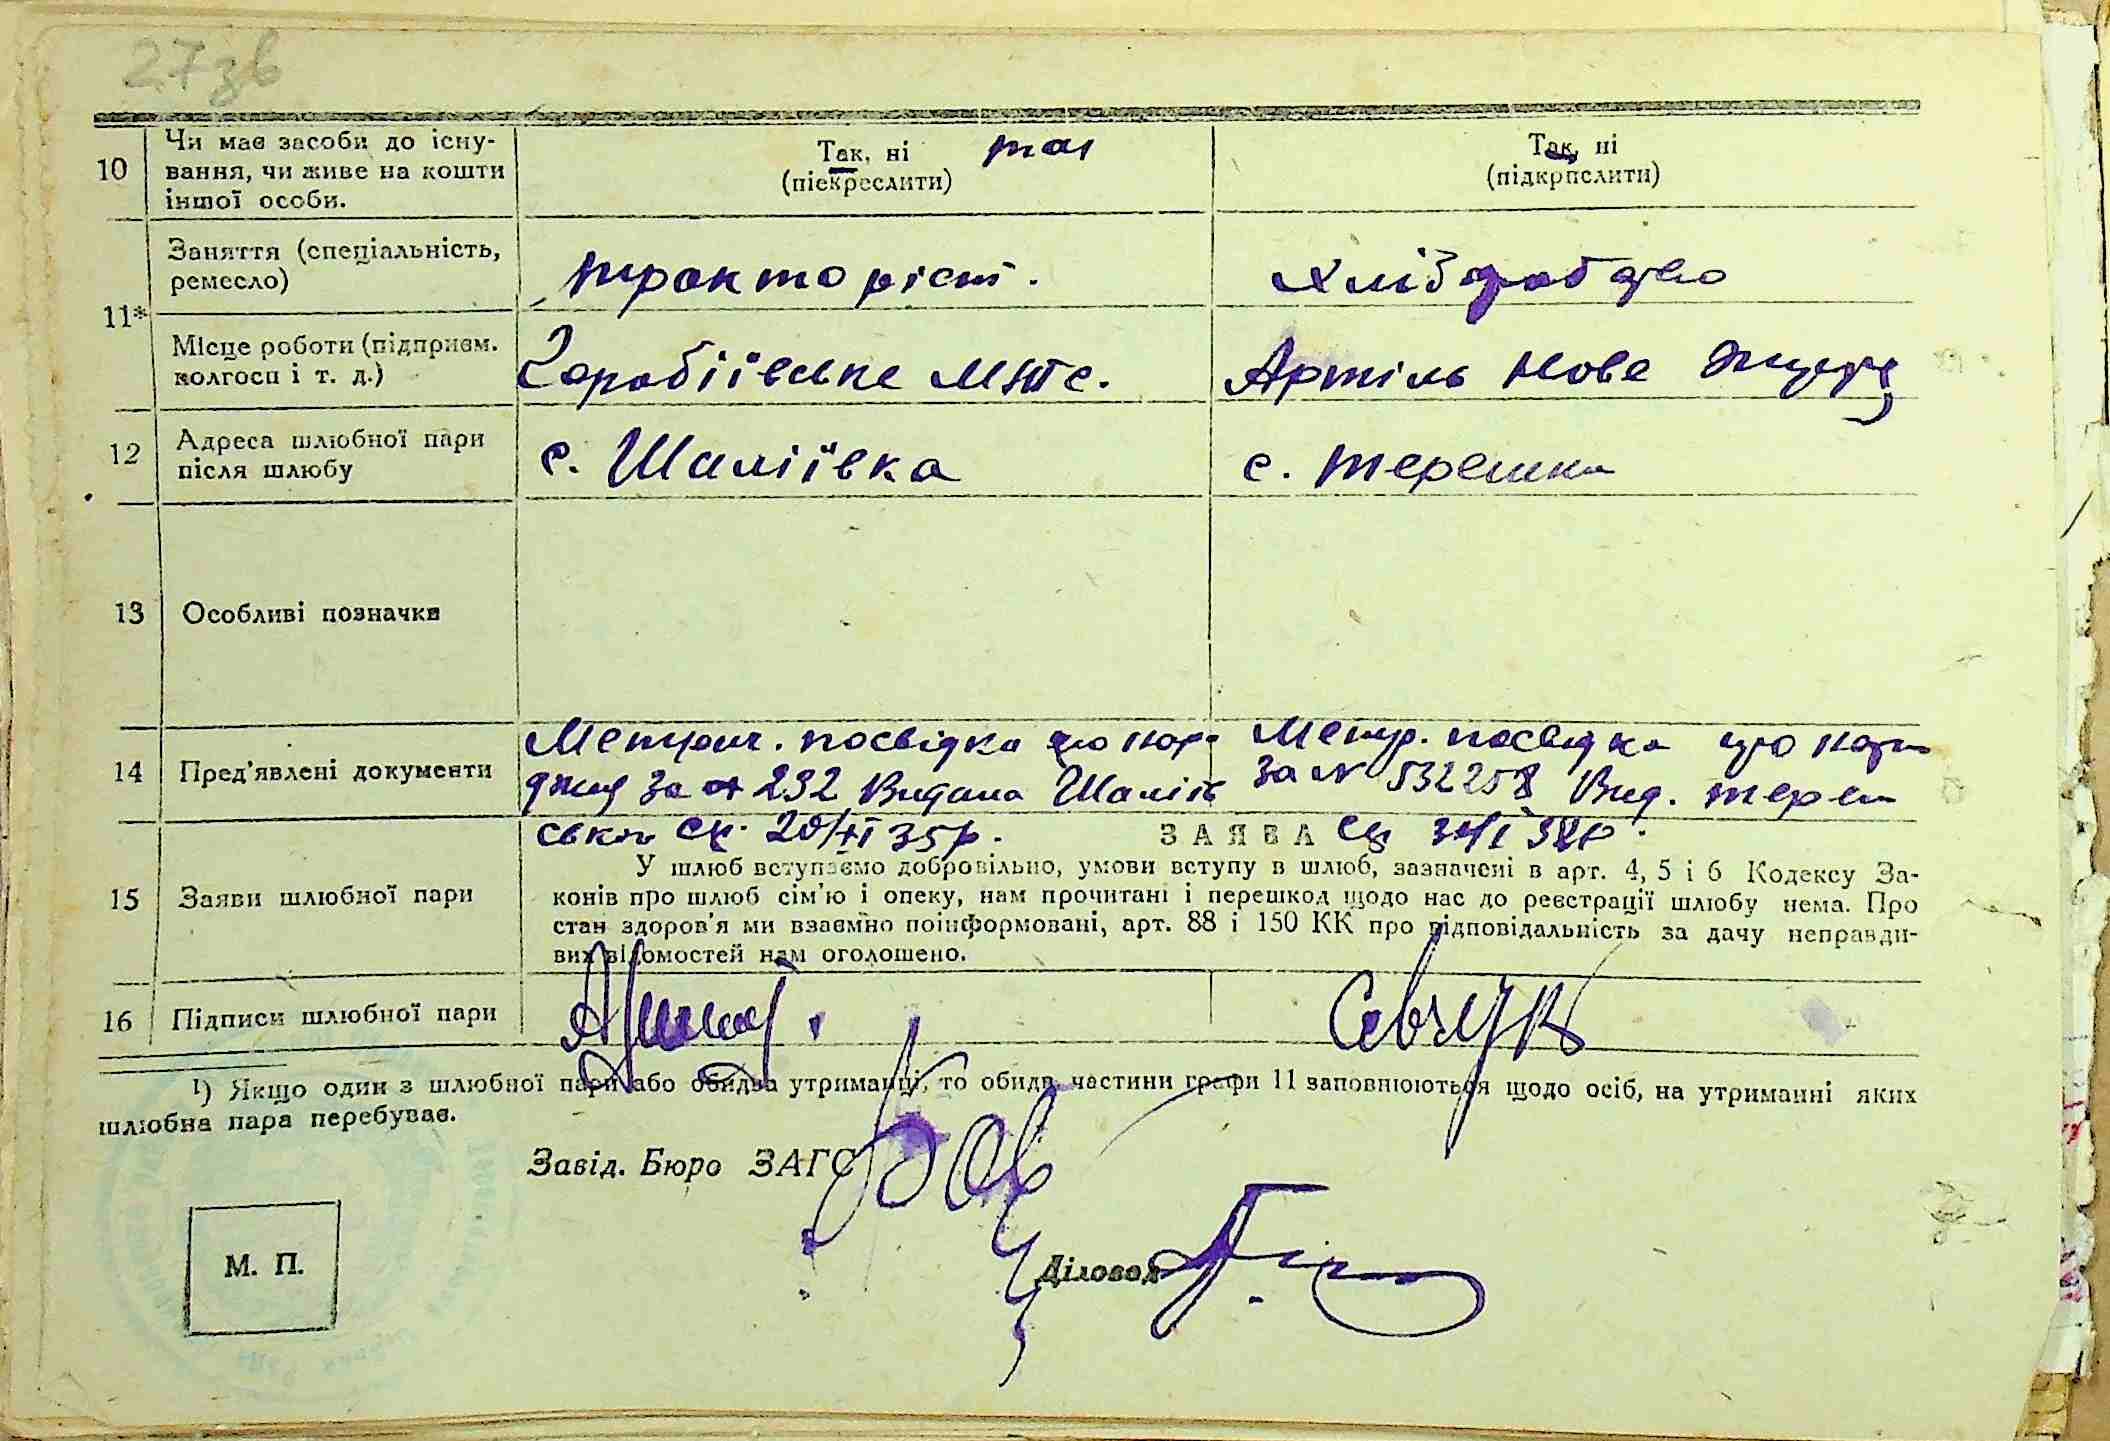 27зв
10 Чи має засоби до існу-
вання, чи живе на кошти
іншої особи.
Так, ні так
(піекреслити)
Так, ні
(підкрпслити)
11*
Заняття (спеціальність,
ремесло)
тракторіст.
Хліборобство
Місце роботи (підприєм.
колгосп і т. д.)
МТС.
Артіль Нове Життя
12 Адреса шлюбної пари
після шлюбу
с. Шаліївка
с. Терешки
13 Особливі позначки
14 Пред'явлені документи
Метрич. посвідка про наро
джен за № 232 Видана Шаліїв
ською СР. 20/XI 35р.
Метр. посвідка про народ
за № 532258 Вид. Тереш
15 Заяви шлюбної пари
ЗАЯВА
У шлюб вступаємо добровільно, умови вступу в шлюб, зазначені в арт. 4, 5 і 6 Кодексу За-
конів про шлюб сім'ю і опеку, нам прочитані і перешкод щодо нас до реєстрації шлюбу нема. Про
стан здоров'я ми взаємно поінформовані, арт. 88 і 150 КК про відповідальність за дачу неправди-
вих відомостей нам оголошено.
16 Підписи шлюбної пари
Севчук
¹) Якщо один з шлюбної пари або обидва утриманці, то обидв. частини графи 11 заповнюються щодо осіб, на утриманні яких
шлюбна пара перебуває.
Завід. Бюро ЗАГС
М. П.
Діловод